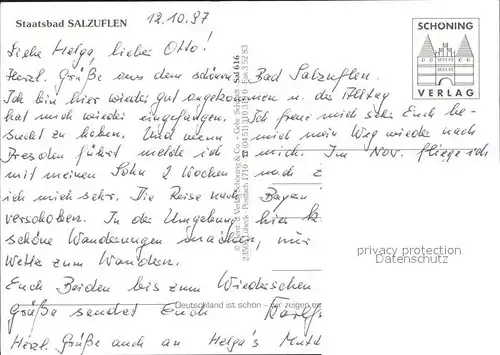 Staatsbad SALZUFLEN
12.10.97
SCHÖNING
VERLAG
Liebe Helga, lieber Otto!
Herzl. Grüße aus dem schönen Bad Salzuflen.
Ich bin hier wieder gut angekommen u. der Alltag
hat mich wieder eingefangen. Ich freue mich sehr Euch be-
sucht zu haben. Und wenn mich mein Weg wieder nach
Dresden führt melde ich mich. Im Nov. fliege ich
mit meinen Sohn 2 Wochen nach
ich mich sehr. Die Reise nach Bayern
verschoben. In der Umgebung hier
schöne Wanderungen machen, nur
Wetter zum Wandern.
Euch Beiden bis zum Wiedersehen
Grüße sendet Euch
Herzl. Grüße auch an Helga's
Deutschland ist schön –
privacy protection
Datenschutz